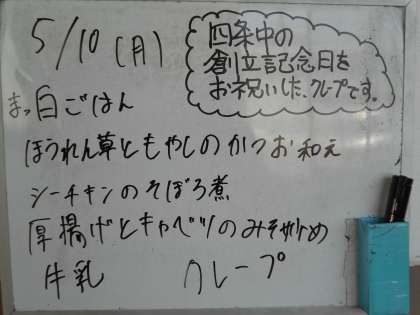 5/10(月)
四条中の
創立記念日を
お祝いした、クレープです。
まっ白ごはん
ほうれん草ともやしのかつお和え
シーチキンのそぼろ煮
厚揚げとキャベツのみそ炒め
牛乳 クレープ